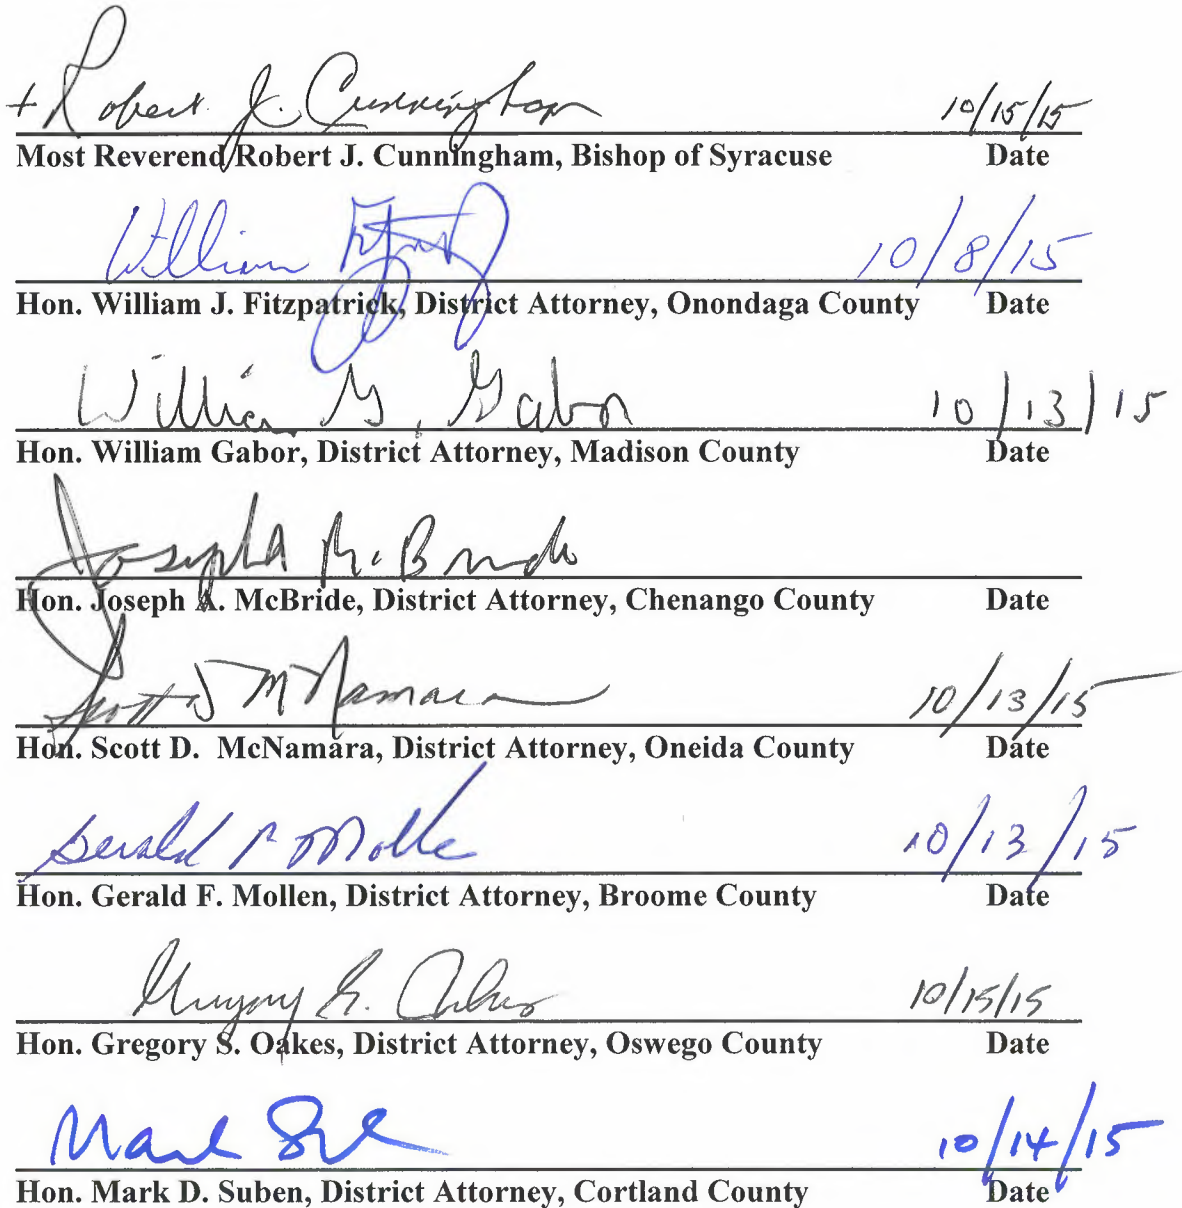 + Robert J. Cunningham 10/15/15
Most Reverend Robert J. Cunningham, Bishop of Syracuse Date
William 10/8/15
Hon. William J. Fitzpatrick, District Attorney, Onondaga County Date
William G. Gabor 10/13/15
Hon. William Gabor, District Attorney, Madison County Date
Joseph McBride
Hon. Joseph A. McBride, District Attorney, Chenango County Date
Scott D McNamara 10/13/15
Hon. Scott D. McNamara, District Attorney, Oneida County Date
Gerald F Mollen 10/13/15
Hon. Gerald F. Mollen, District Attorney, Broome County Date
Gregory S. Oakes 10/15/15
Hon. Gregory S. Oakes, District Attorney, Oswego County Date
Mark 10/14/15
Hon. Mark D. Suben, District Attorney, Cortland County Date